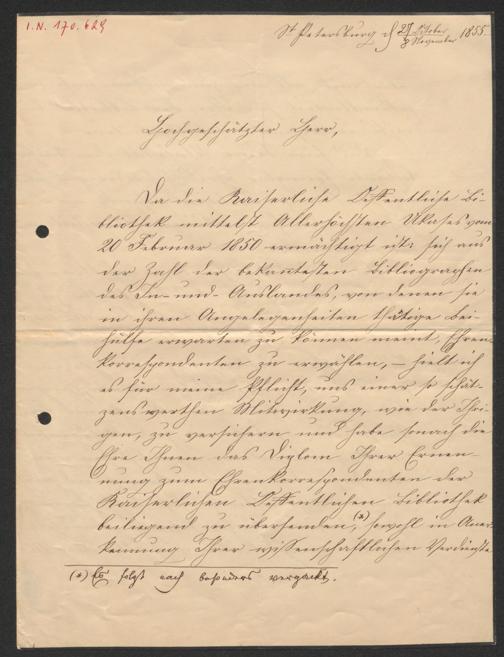 I.N. 170.629
St Petersburg d 27 October / 8 November 1855.
Hochgeschätzter Herr,
Da die Kaiserliche Oeffentliche Bi-
bliothek mittelst Allerhöchsten Ukases vom
20 Februar 1850 ermächtigt ist: sich aus
der Zahl der bekanntesten Bibliographen
des In- und- Auslandes, von denen sie
in ihren Angelegenheiten thätige Bei-
hülfe erwarten zu können meint, Ehren-
korrespondenten zu erwählen, – hielt ich
es für meine Pflicht, uns einer so schät-
zenswerthen Mitwirkung, wie der Ihri-
gen, zu versichern und habe sonach die
Ehre Ihnen das Diplom Ihrer Ernen-
nung zum Ehrenkorrespondenten der
Kaiserlichen Oeffentlichen Bibliothek
beiliegend zu übersenden, (*) sowohl in Aner-
kennung Ihrer wissenschaftlichen Verdienste
(*) Es folgt noch besonders verpackt.